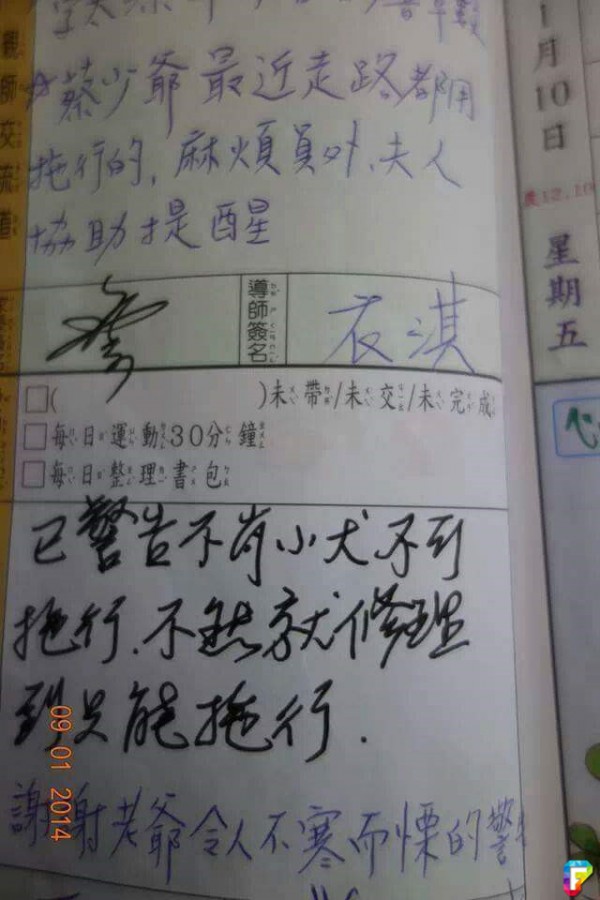 蔡少爺最近走路都用
拖行的,麻煩員外、夫人
協助提醒
導師簽名
衣淇
□( )未帶/未交/未完成
□每日運動30分鐘
□每日整理書包
已警告不肖小犬不可
拖行.不然就修理
到只能拖行.
謝謝老爺令人不寒而慄的警
親師交流道
1月10日
星期五
農12.10
09 01 2014
F